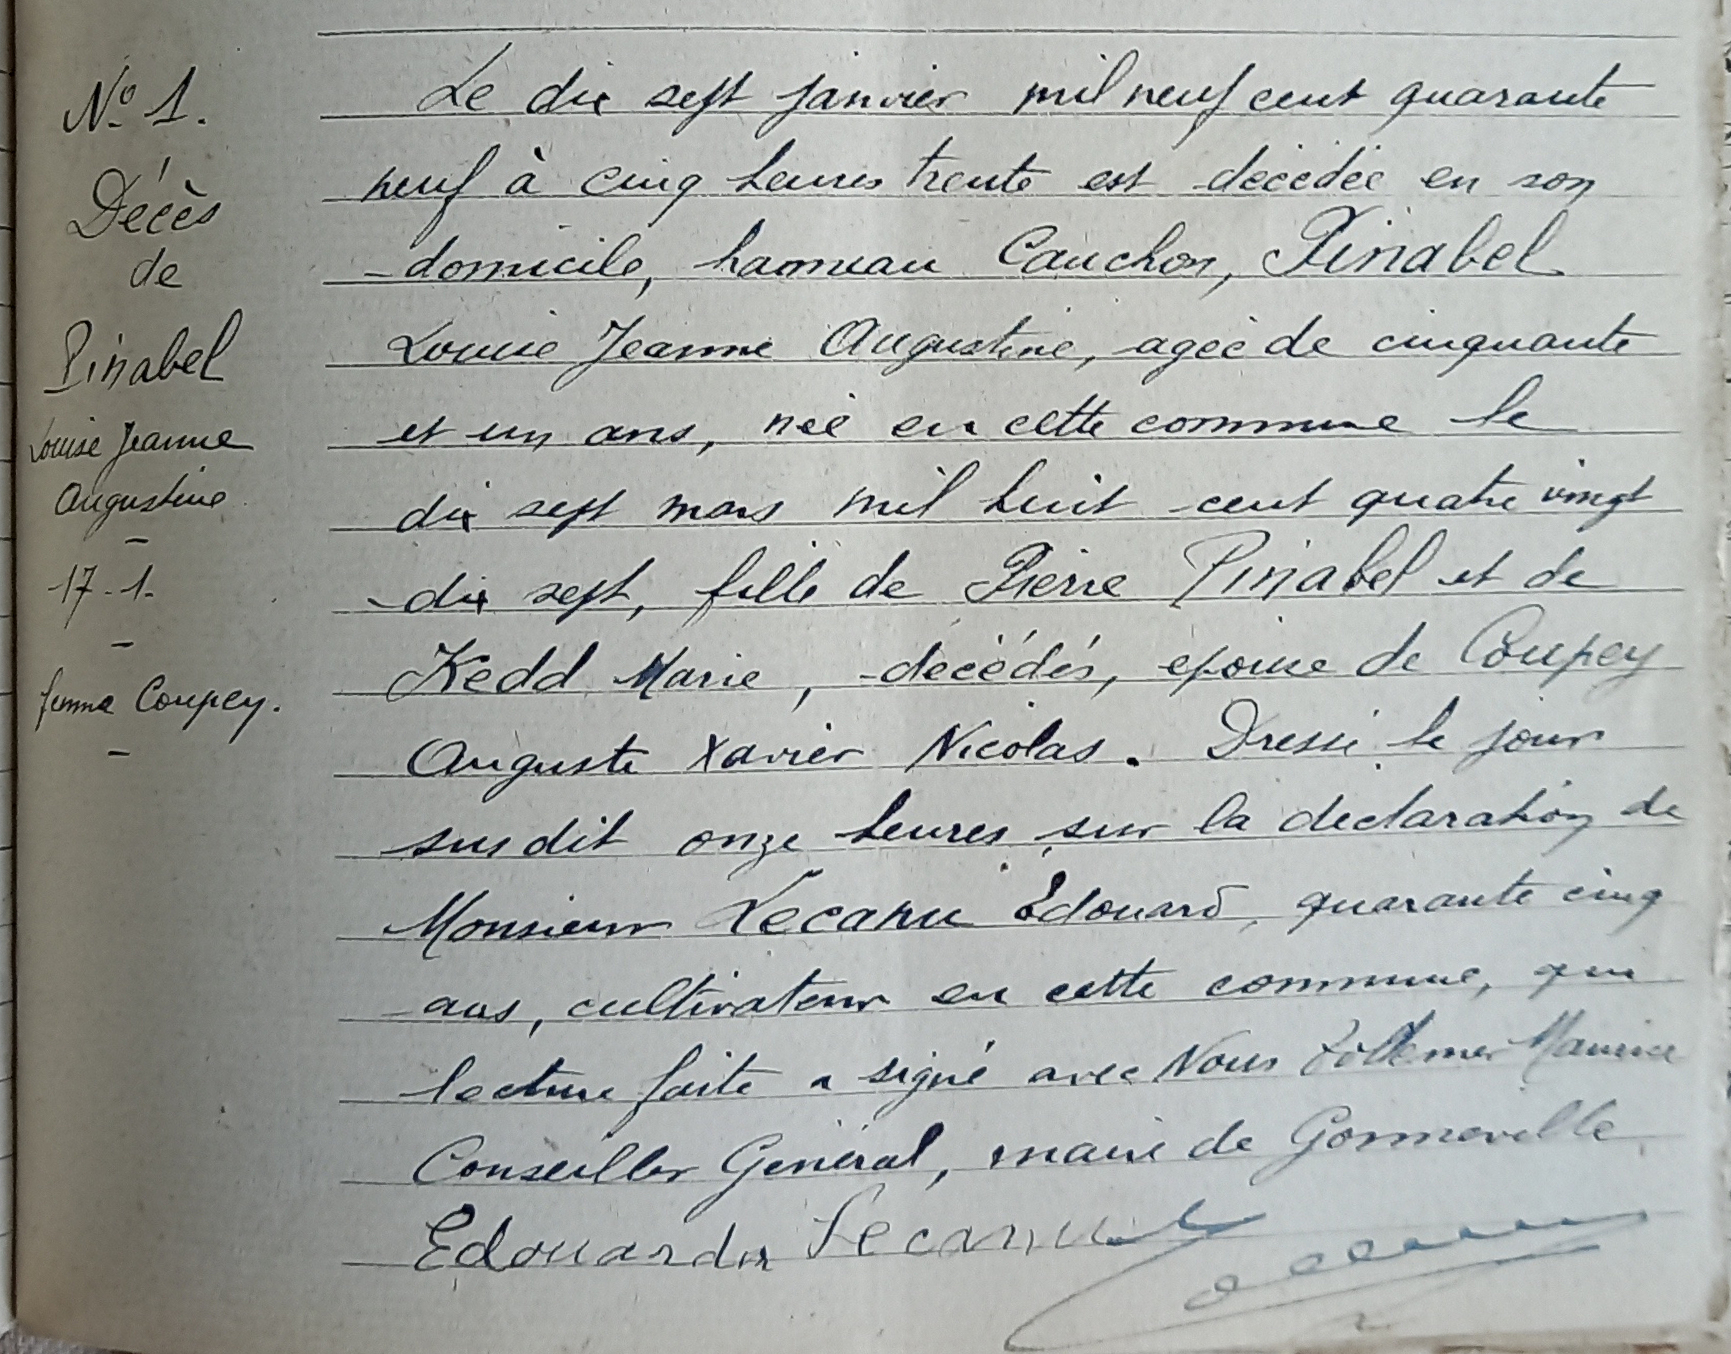 N° 1.
Décès
de
Pinabel
Louise Jeanne
Augustine
-
17-1-
-
femme Coupey.
-
Le dix sept janvier mil neuf cent quarante
neuf à cinq heures trente est décédée en son
domicile, hameau Cauchon, Pinabel
Louise Jeanne Augustine, agée de cinquante
et un ans, née en cette commune le
dix sept mars mil huit cent quatre vingt
dix sept, fille de Pierre Pinabel et de
Kedd Marie, décédés, epouse de Coupey
Auguste Xavier Nicolas. Dressé le jour
susdit onze heures sur la déclaration de
Monsieur Lecanu Edouard, quarante cinq
ans, cultivateur en cette commune, qui
lecture faite a signé avec Nous Maurice
Conseiller Général, maire de Gonneville
Edouard Lecanu